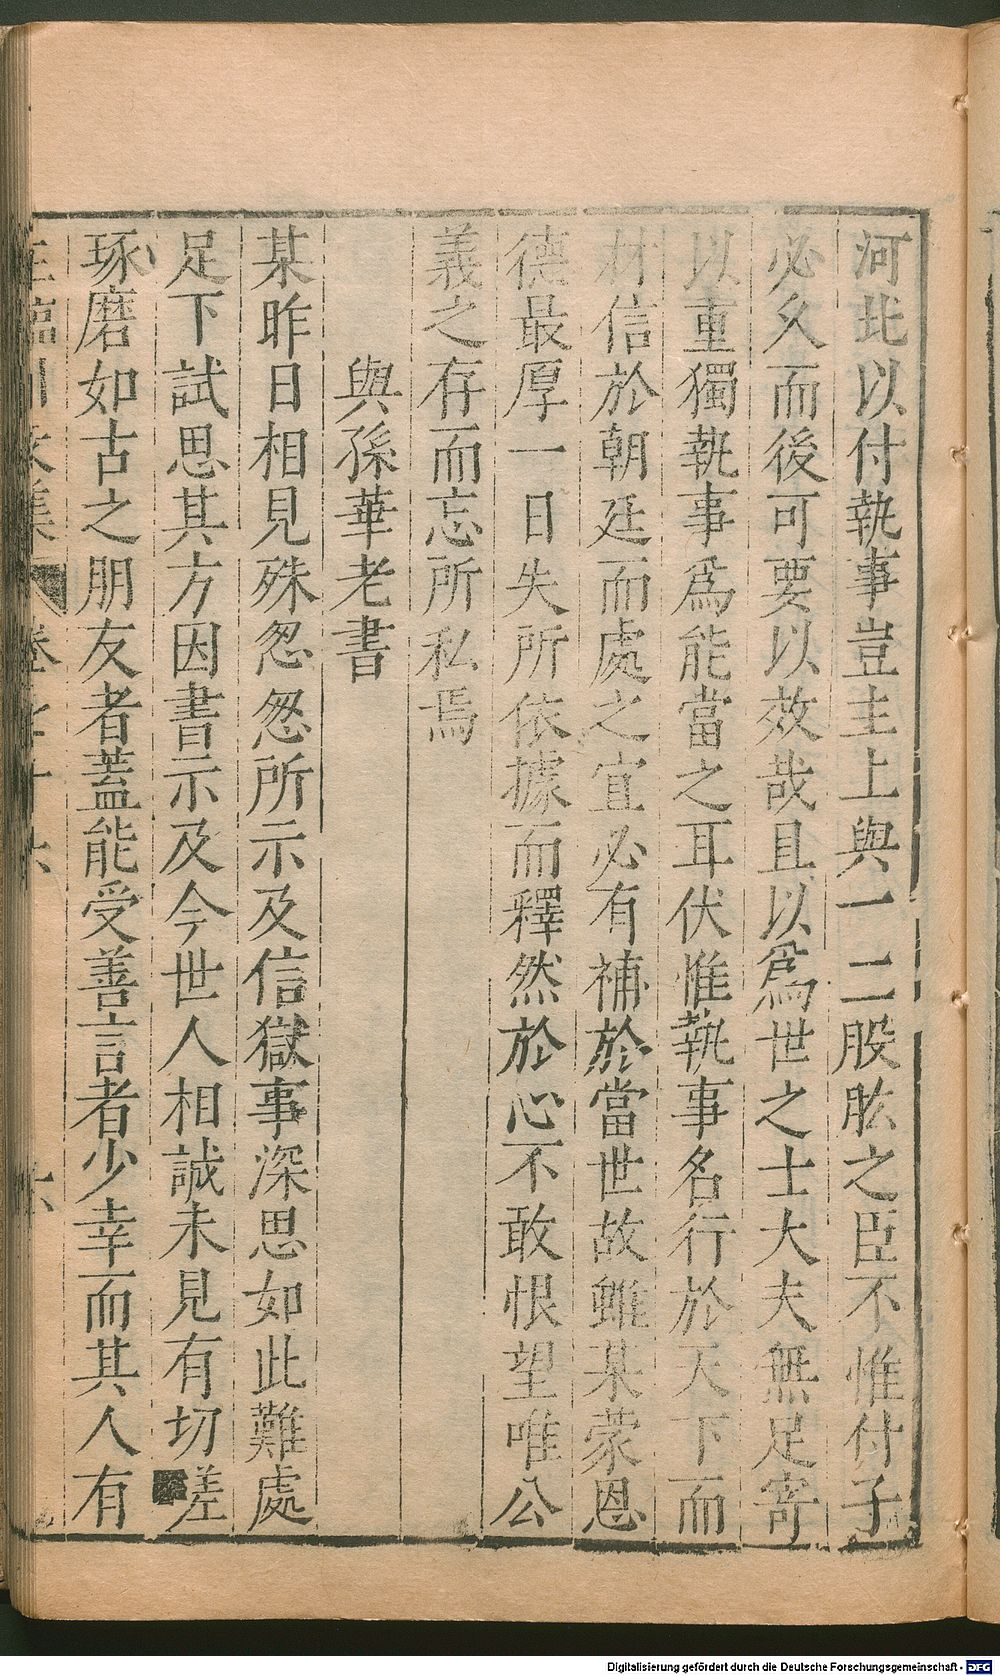 河北以付執事豈主上與一二股肱之臣不惟付予
必久而後可要以效哉且以爲世之士大夫無足寄
以重獨執事爲能當之耳伏惟執事名行於天下而
材信於朝廷而處之宜必有補於當世故雖某蒙恩
德最厚一日失所依據而釋然於心不敢恨望唯公
義之存而忘所私焉
與孫莘老書
某昨日相見殊怱怱所示及信獄事深思如此難處
足下試思其方因書示及今世人相誠未見有切磋
琢磨如古之朋友者蓋能受善言者少幸而其人有
王臨川文集 卷七十六 六
Digitalisierung gefördert durch die Deutsche Forschungsgemeinschaft - DFG